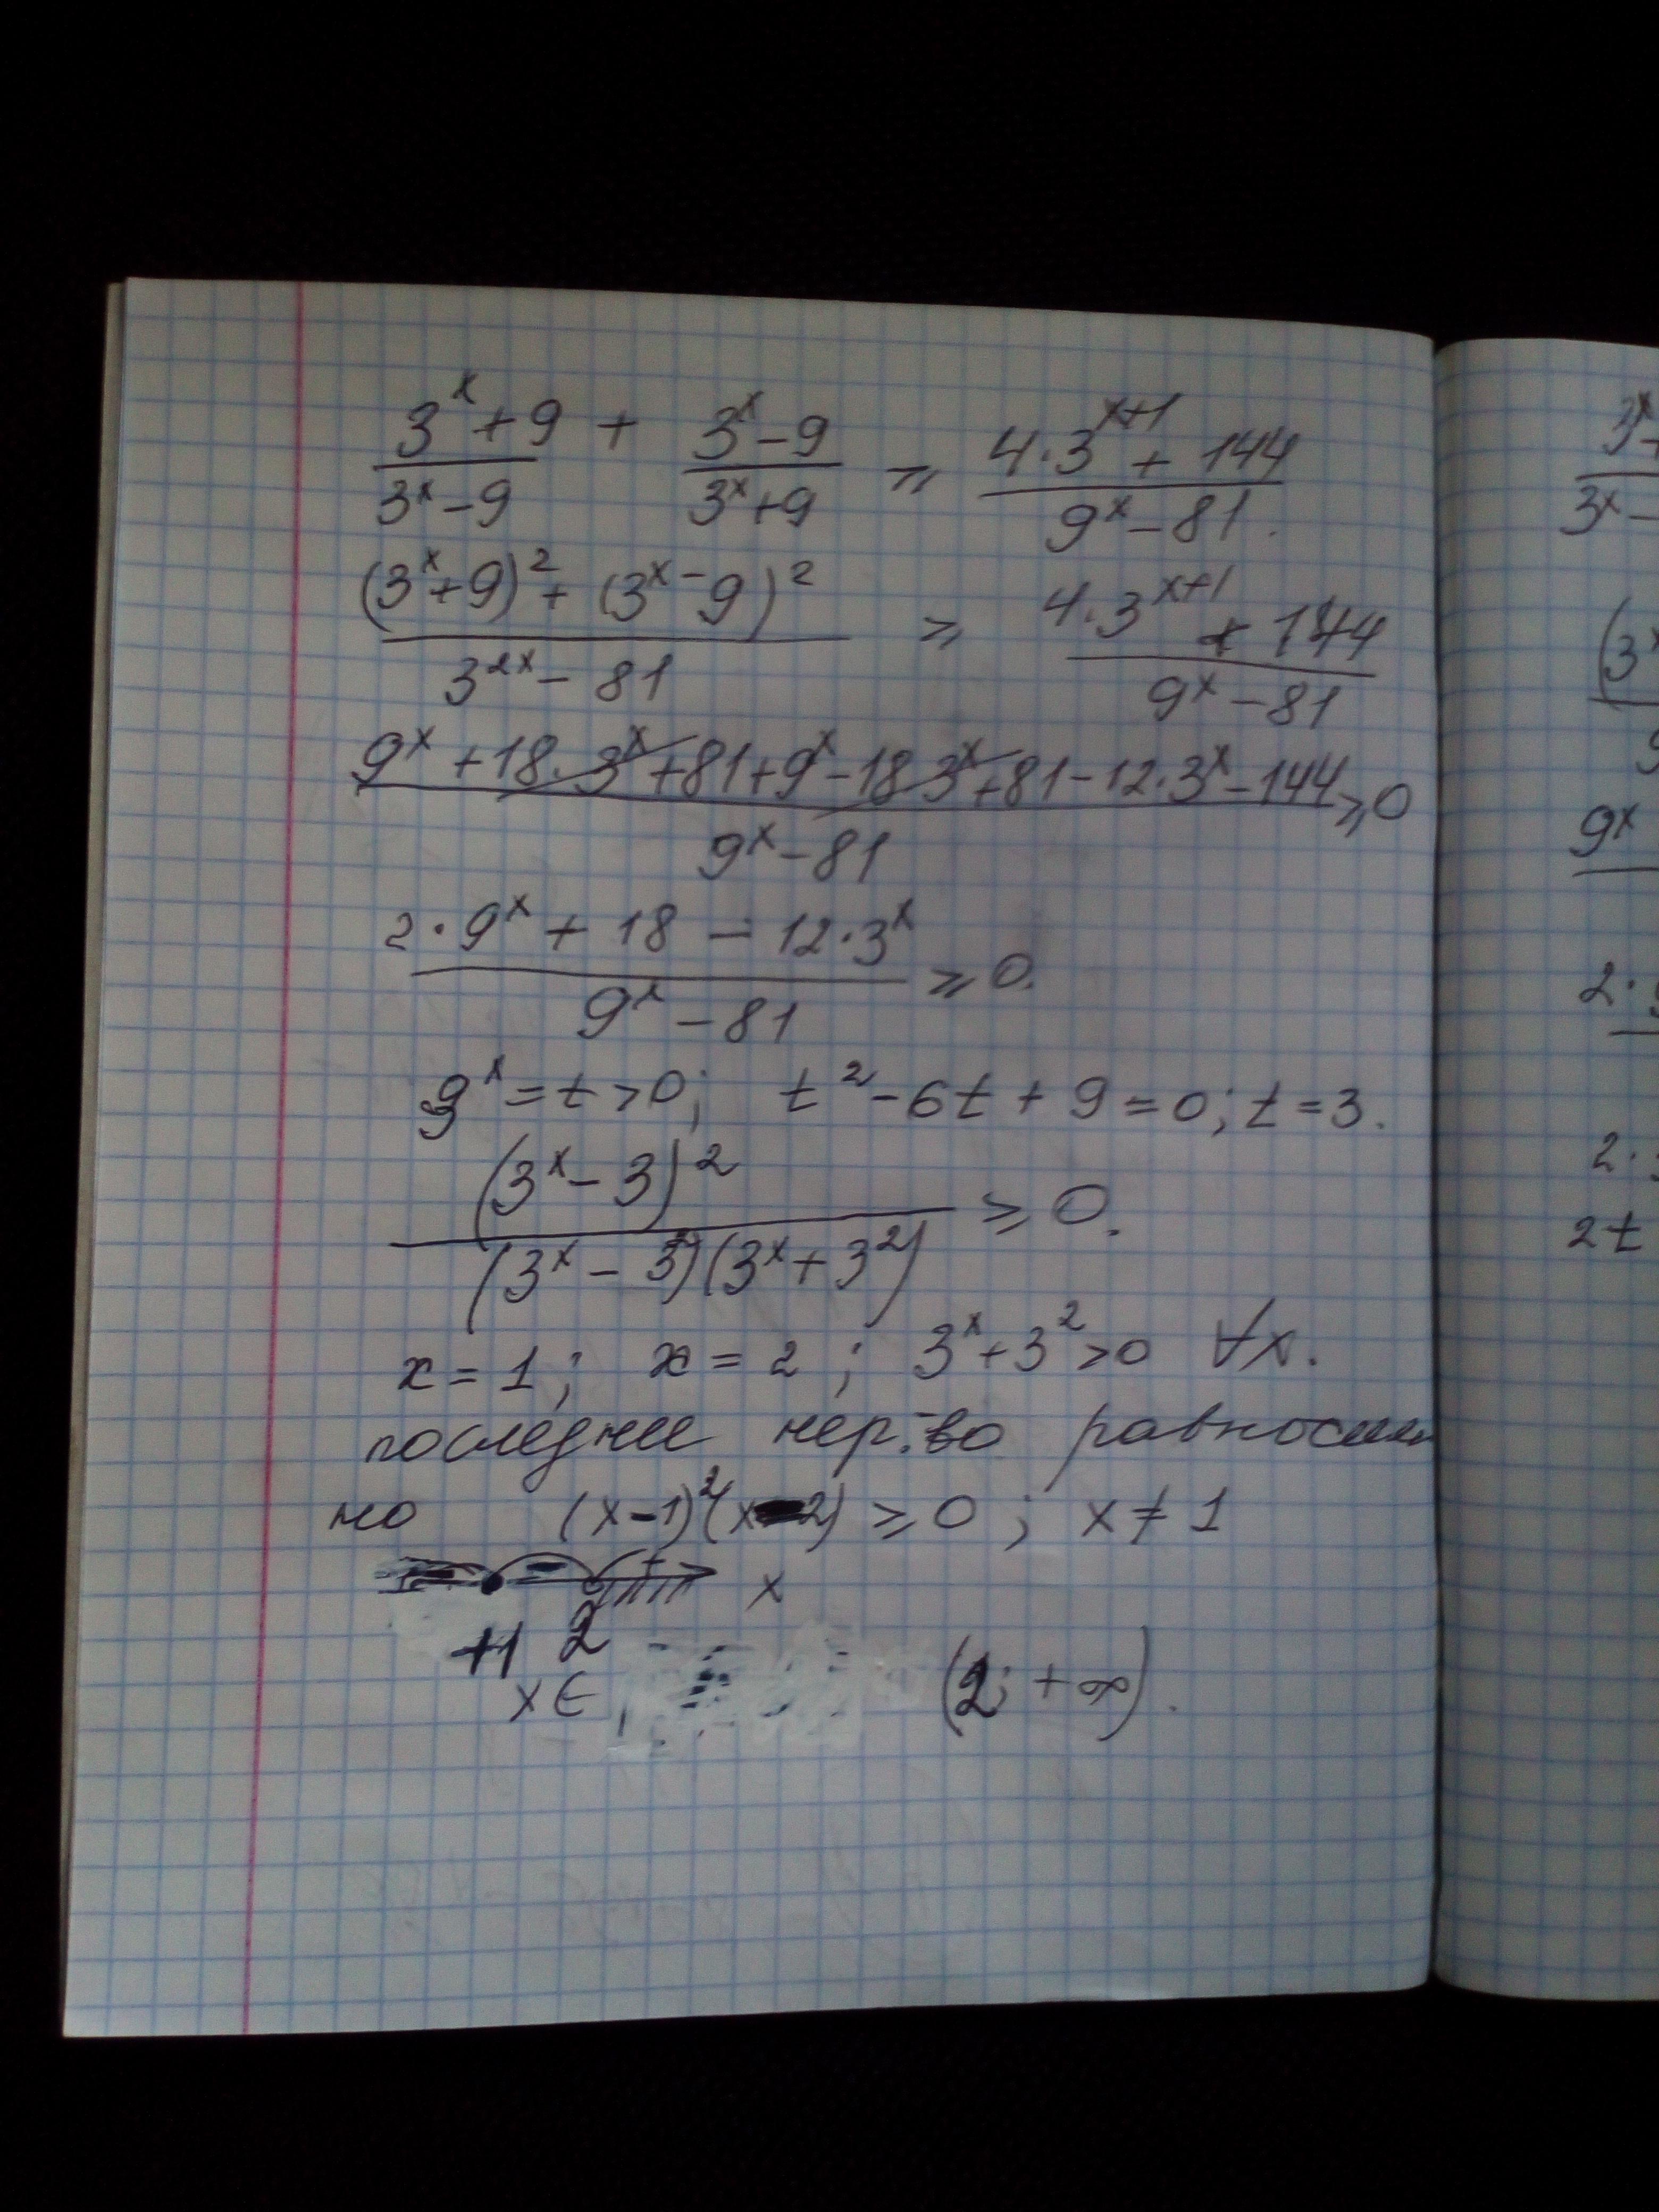 (3^x + 9)/(3^x − 9) + (3^x − 9)/(3^x + 9) ⩾ (4·3^(x+1) + 144)/(9^x − 81).
((3^x + 9)^2 + (3^x − 9)^2)/(3^(2x) − 81) ⩾ (4·3^(x+1) + 144)/(9^x − 81)
(9^x + 18·3^x + 81 + 9^x − 18·3^x + 81 − 12·3^x − 144)/(9^x − 81) ⩾ 0
(2·9^x + 18 − 12·3^x)/(9^x − 81) ⩾ 0.
3^x = t > 0; t^2 − 6t + 9 = 0; t = 3.
(3^x − 3)^2/((3^x − 3^2)(3^x + 3^2)) ⩾ 0.
x = 1; x = 2; 3^x + 3^2 > 0 ∀x.
последнее нер-во равносиль
но (x − 1)^2(x − 2) ⩾ 0; x ≠ 1
− + x
+1 2
x ∈ (2; +∞).
3^x
3^x −
(3^x
9^x
2·
2·
2t